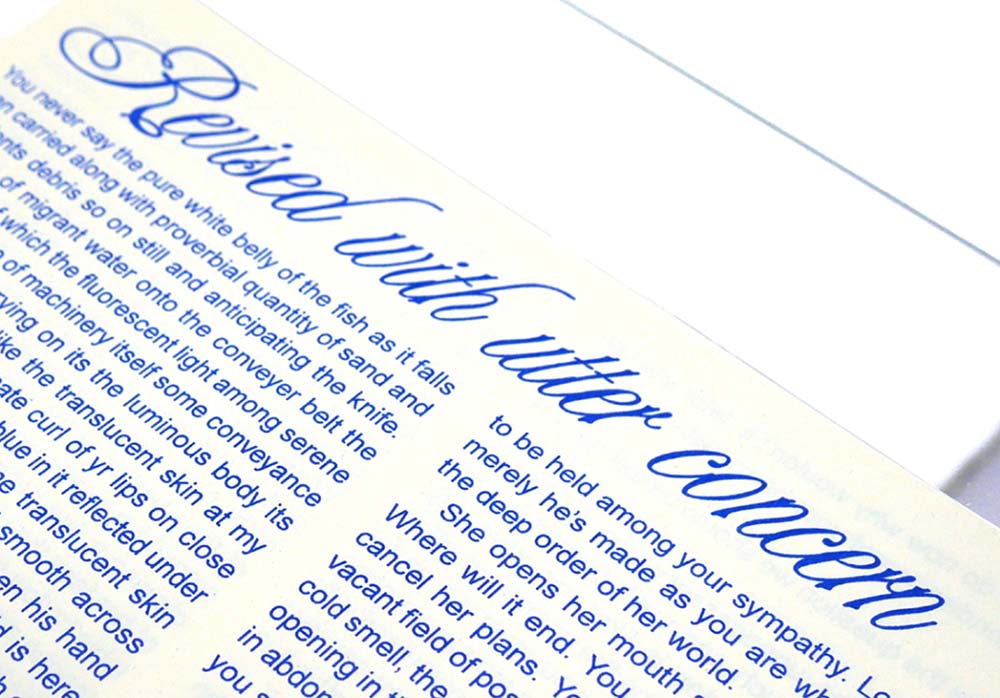 Revised with utter concern
You never say the pure white belly of the fish as it falls
carried along with proverbial quantity of sand and
debris so on still and anticipating the knife.
of migrant water onto the conveyer belt the
which the fluorescent light among serene
of machinery itself some conveyance
on its the luminous body its
like the translucent skin at my
curl of yr lips on close
blue in it reflected under
translucent skin
smooth across
his hand
is here
to be held among your sympathy.
merely he's made as you are
the deep order of her world.
She opens her mouth
Where will it end. You
cancel her plans.
vacant field of
cold smell, the
opening in
in
you